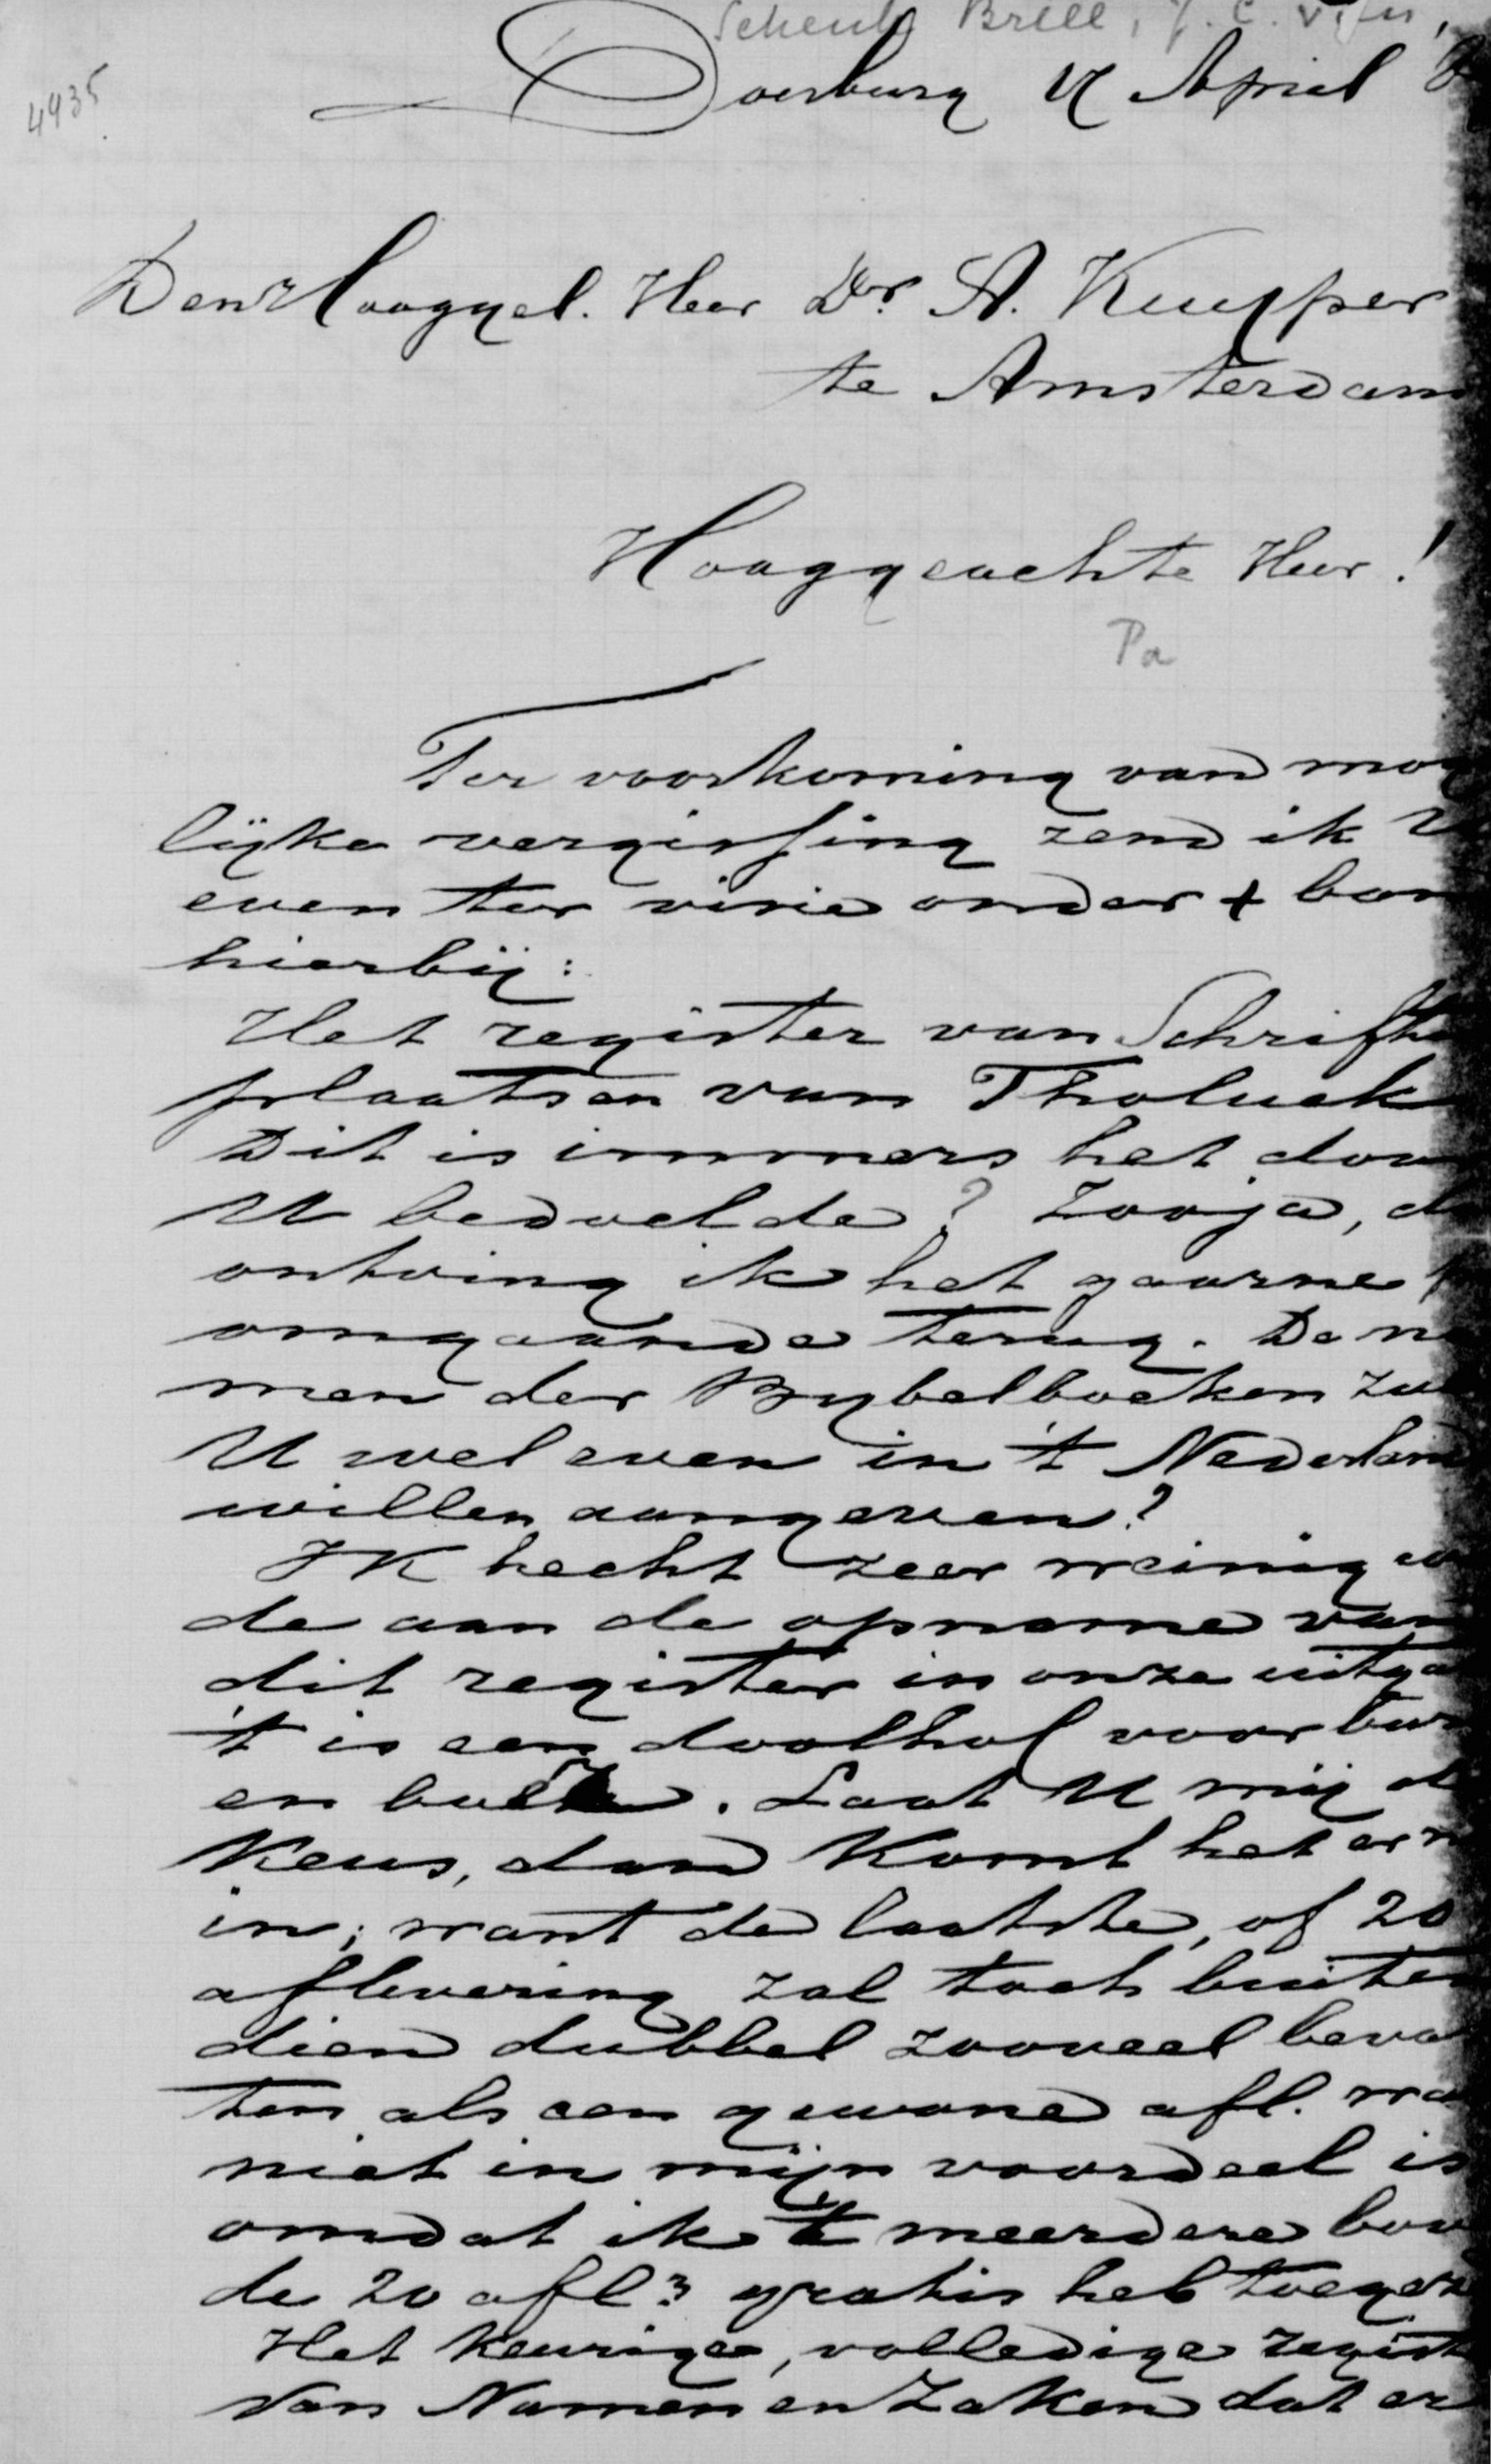 4935
Schenk Brill, J. C. v.
Doesburg 17 April
Den Hooggel. Heer Dr. A. Kuyper
te Amsterdam
Hooggeachte Heer!
Pa
Ter voorkoming van mog
lijke vergissing zend ik U
even ter visie onder + ban
hierbij:
Het register van Schrift
plaatsen van Tholuck
Dit is immers het door
U bedoelde? Zooja, d
ontving ik het gaarne p
omgaande terug. De na
men der Bijbelboeken zu
U wel even in 't Nederland
willen aangeven?
IK hecht zeer weinig w
de aan de opname van
dit register in onze uitga
't is een doolhof voor bur
en boer. Laat U mij d
Keus, dan Komt het er n
in; want de laatste, of 20
aflevering zal toch buiten
dien dubbel zooveel beva
ten als een gewone afl. wa
niet in mijn voordeel is
omdat ik 't meerdere bov
de 20 afln gratis heb toegez
Het Keurige, volledige regist
van Namen en Zaken dat er